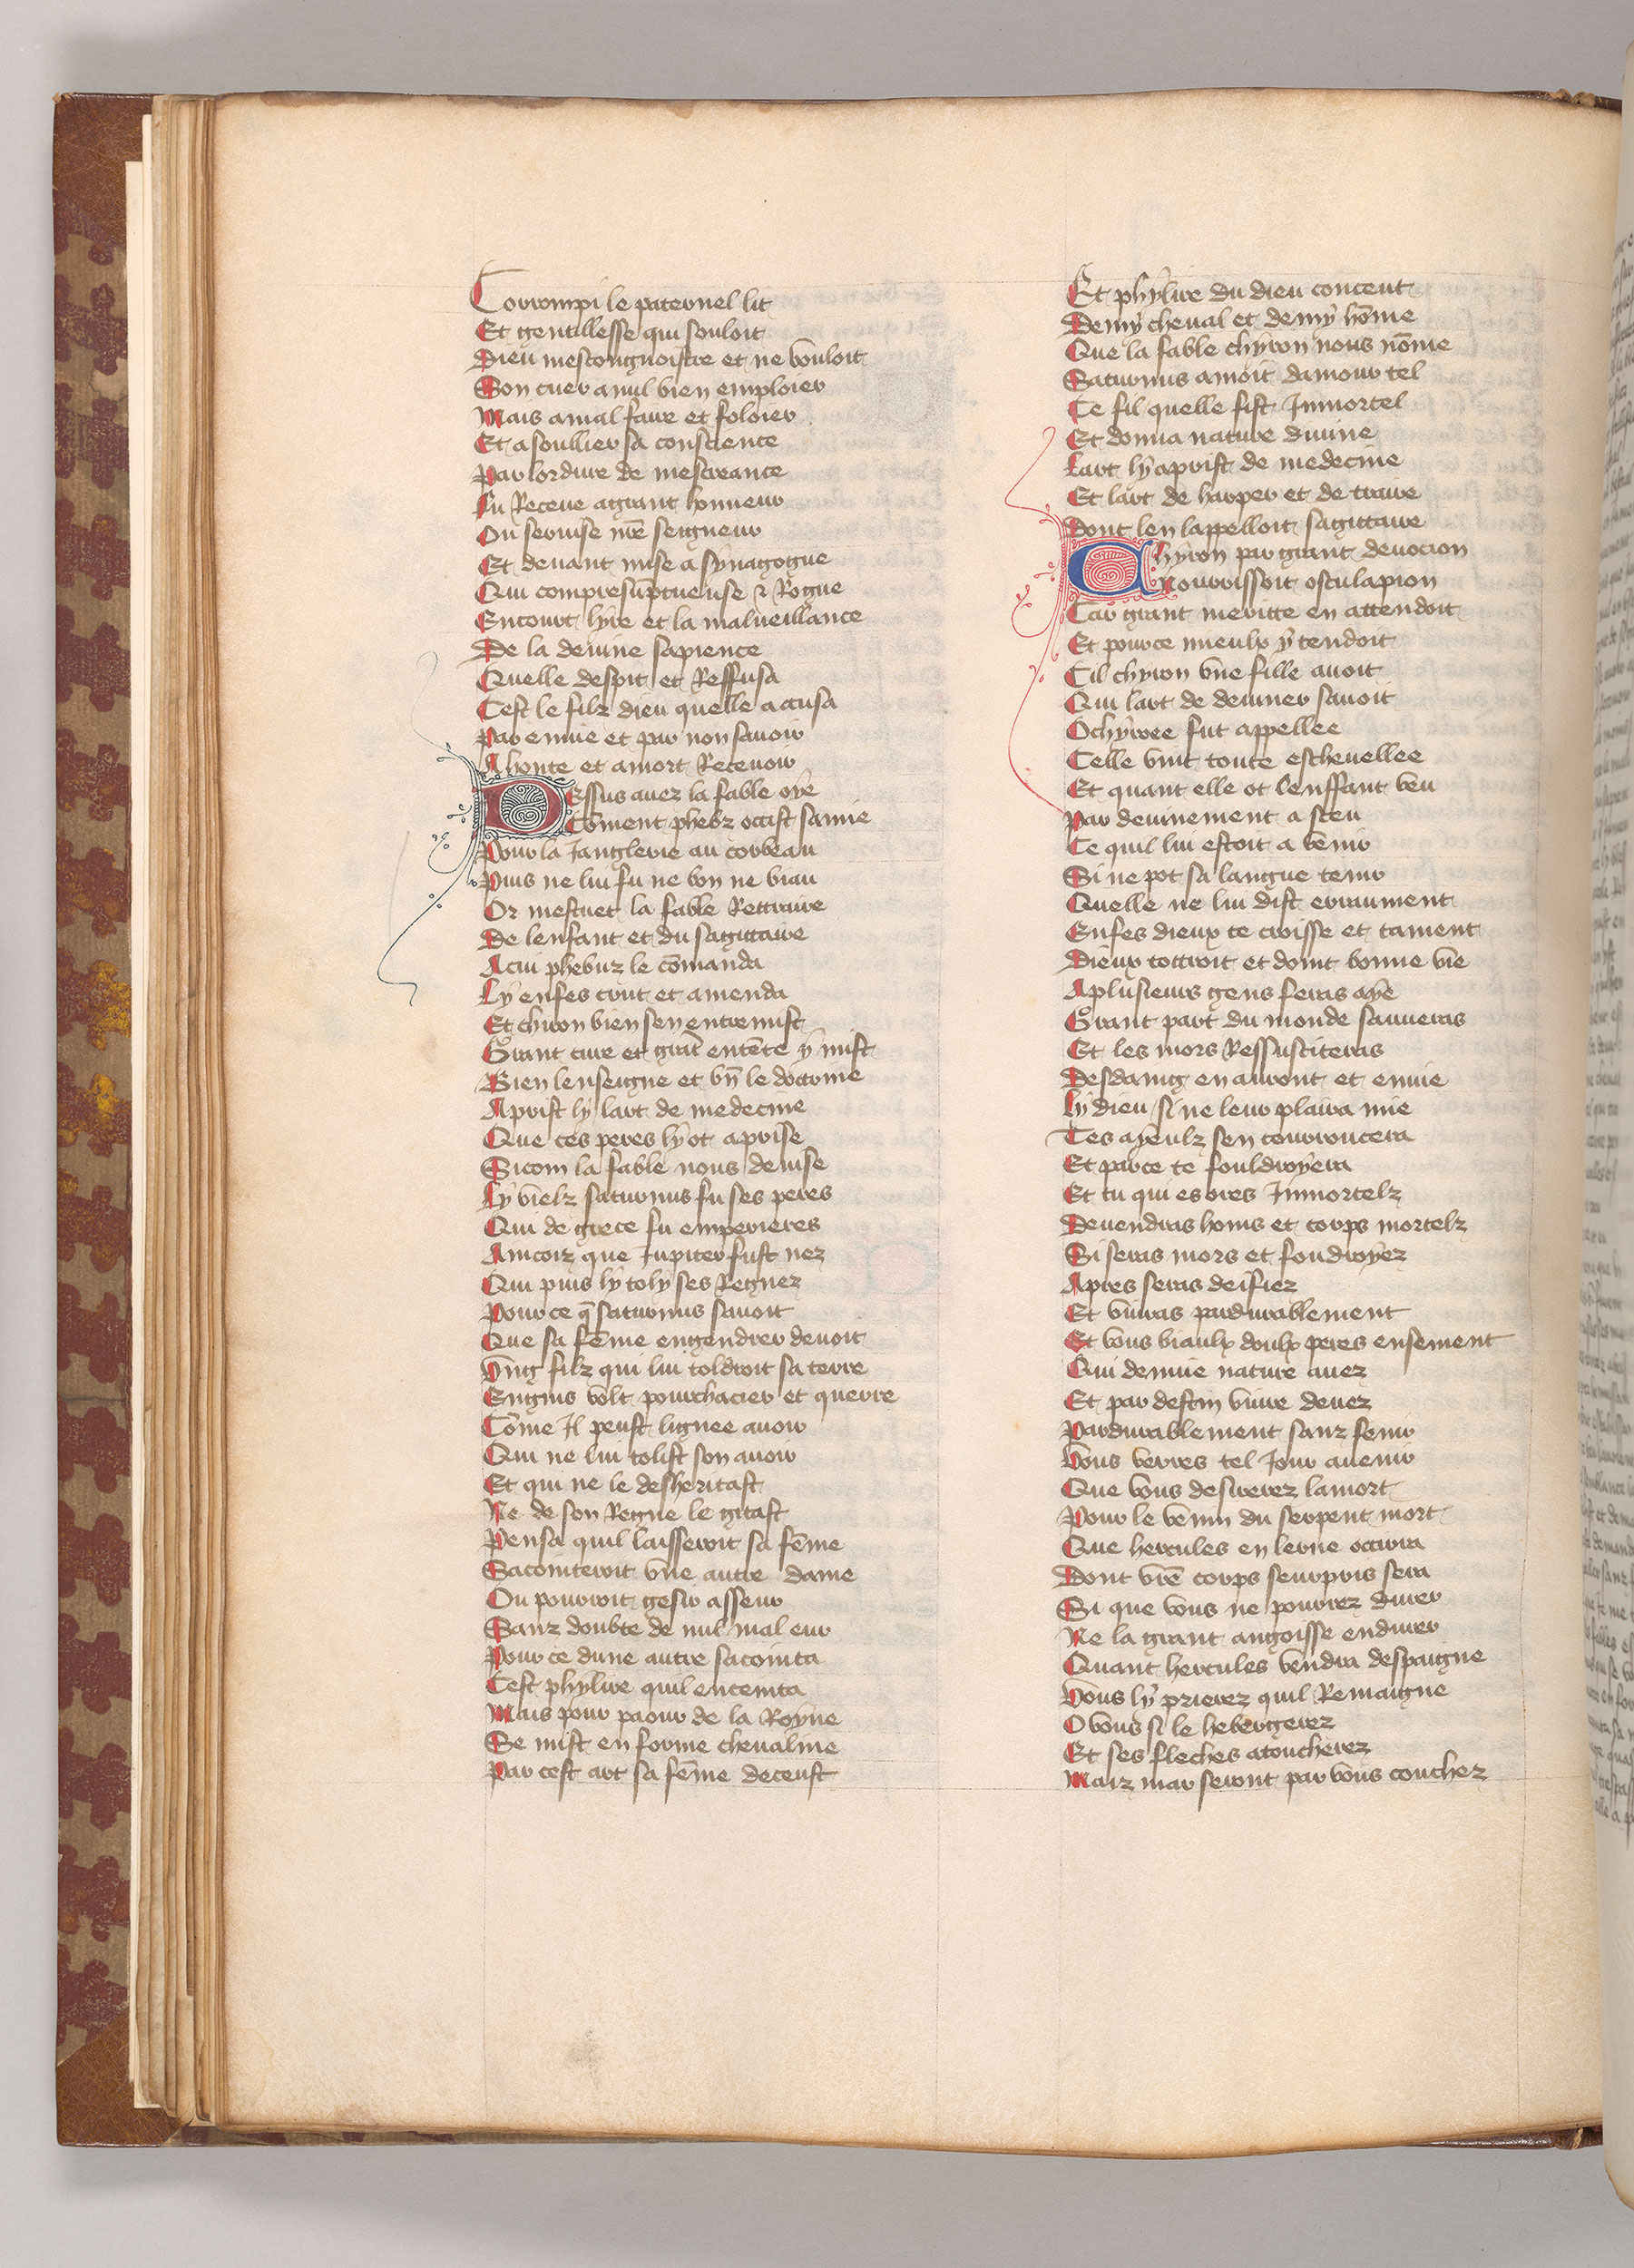 Corrompi le paternel lit
Et gentillesse qui souloit
Dieu mescongnoistre et ne vouloit
Son cuer a nul bien emploier
Mais a mal faire et foloier
Et a soullier sa conscience
Par lordure de mescreance
Fu Receue a grant honneur
Ou seruise nr̄e seigneur
Et deuant mise a synagogue
Qui com presūptueuse & Rogue
Encourt lyre et la malueillance
De la deuine sapience
Quelle despit et Reffusa
Cest le filz dieu quelle accusa
Par enuie et par non sauoir
A honte et a mort Receuoir
Dessus auez la fable oye
Cōment phebz occist samie
Pour la Janglerie au corbeau
Puis ne lui fu ne bon ne biau
Or mestuet la fable Rettraire
De lenfant et du sagittaire
A cui phebuz le cōmanda
Ly enfes crut et amenda
Et chiron bien sen entremist
Grant cure et grāt entēte y mist
Bien lenseigne et bn̄ le doctrine
Aprist ly lart de medecine
Que ces peres ly ot aprise
Si com la fable nous deuise
Ly vielz saturnus fu ses peres
Qui de grece fu emperieres
Aincoiz que Jupiter fust nez
Qui puis ly toly ses Regnez
Pour ce q̄ saturnus sauoit
Que sa fēme engendrer deuoit
Vng filz qui lui toldroit sa terre
Engins volt pourchacier et querre
Cōme Il peust lignee auoir
Qui ne lui tolist son auoir
Et qui ne le desheritast
Ne de son Regne le gitast
Pensa quil laisseroit sa fēme
Sacointeroit vne autre dame
Ou pourroit gesir asseur
Sanz doubte de nul mal eur
Pour ce dune autre sacointa
Cest phylire quil enceinta
Mais pour paour de la Royne
Se mist en forme cheualine
Par cest art sa fēme deceust
Et phylire du dieu concent
Demy cheual et demy hōme
Que la fable chyron nous nōme
Saturnus amoit damour tel
Ce fil quelle fist Inmortel
Et donna nature diuine
Lart ly aprist de medecine
Et lart de harper et de traire
Dont len lappelloit sagittaire
Chyron par grant deuocion
Nourrissoit osculapion
Car grant meritte en attendoit
Et pource mieulx y tendoit
Cil chyron vne fille auoit
Qui lart de deuiner sauoit
Ochyroee fut appellee
Celle vint toute escheuellee
Et quant elle ot lenffant veu
Par deuinement a sceu
Ce quil lui estoit a venir
Si ne pot sa langue tenir
Quelle ne lui dist erraument
Enfes dieux te croisse et tament
Dieux tottroit et doint bonne vie
A plusieurs gens feras aye
Grant part du monde sauueras
Et les mors Ressusciteras
Desdaing en auront et enuie
Ly dieu si ne leur plaira mie
Tes ayeulz sen courroucera
Et parce te fouldroyera
Et tu qui es ores Inmortelz
Deuendras homs et corps mortelz
Si seras mors et foudroyez
Apres seras deifiez
Et viuras pardurablement
Et vous biaulx doulx peres ensement
Qui deuine nature auez
Et par destin viure deuez
Pardurablement sanz fenir
Vous verres tel Jour auenir
Que vous desirerez la mort
Pour le venin du serpent mort
Que hercules en lerne occirra
Dont vr̄e corps seurpris sera
Si que vous ne pourrez durer
Ne la grant angoisse endurer
Quant hercules vendra despaigne
Vous ly prierez quil Remaigne
O vous si le hebergerez
Et ses fleches atoucherez
Maiz mar seront par vous couchez